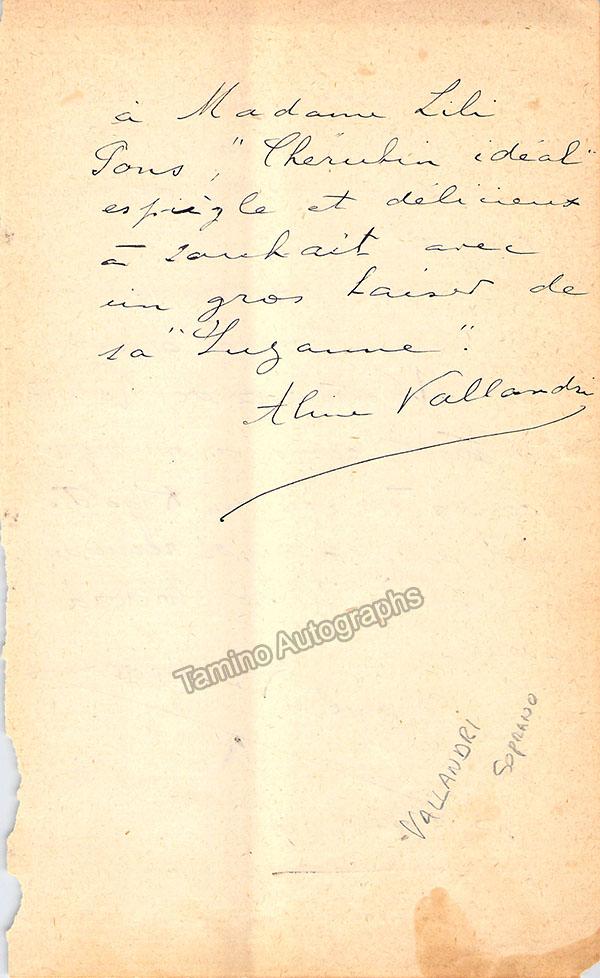 à Madame Lili
Pons, "Chérubin idéal"
espiègle et délicieux
à souhait avec
un gros baiser de
sa "Suzanne".
Aline Vallandri
Tamino Autographs
VALLANDRI
SOPRANO